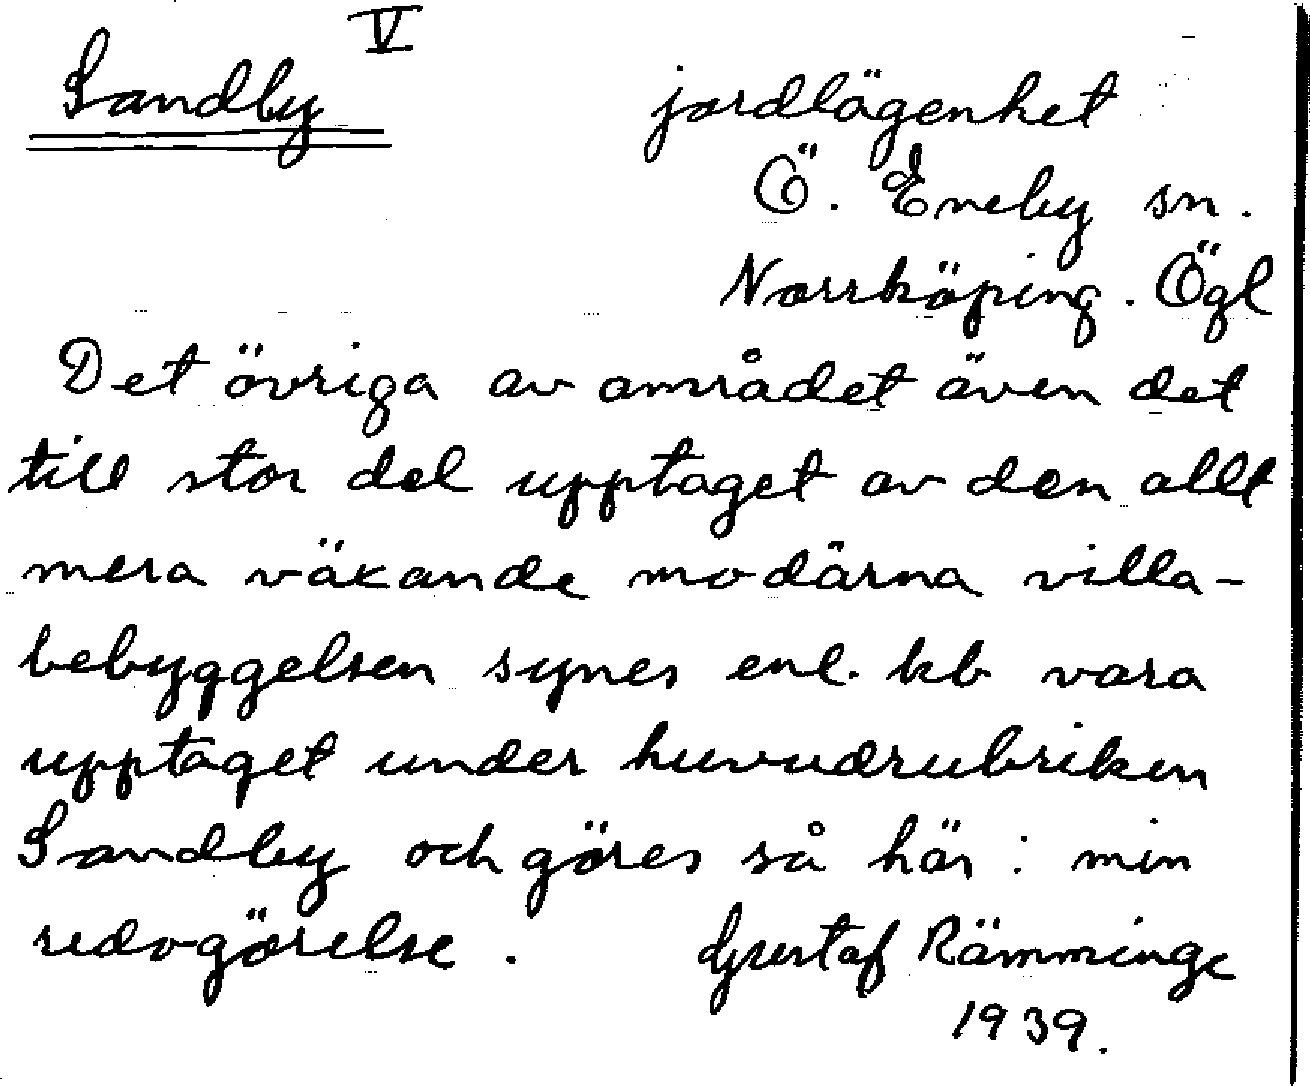 Sandby V
jordlägenhet
Ö. Eneby sn.
Norrköping. Ögl
Det övriga av området även det
till stor del upptaget av den allt
mera väkande modärna villa-
bebyggelsen synes enl. kb vara
upptaget under huvudrubriken
Sandby och göres så här i min
redogörelse. Gustaf Rämminge
1939.